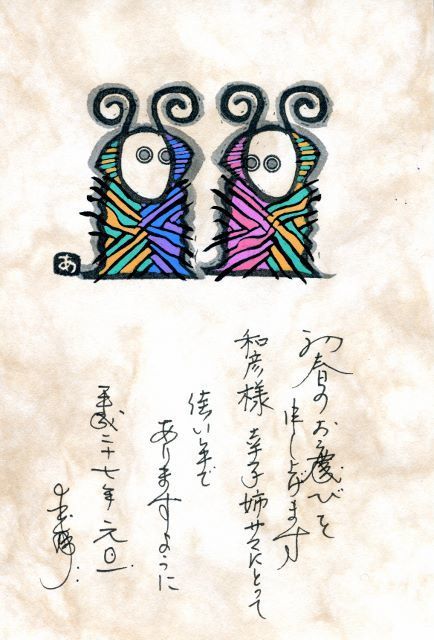 あ
初春のお慶びを
申し上げます
和彦様 幸子姉サマにとって
佳い年で
ありますように
平成二十七年 元旦